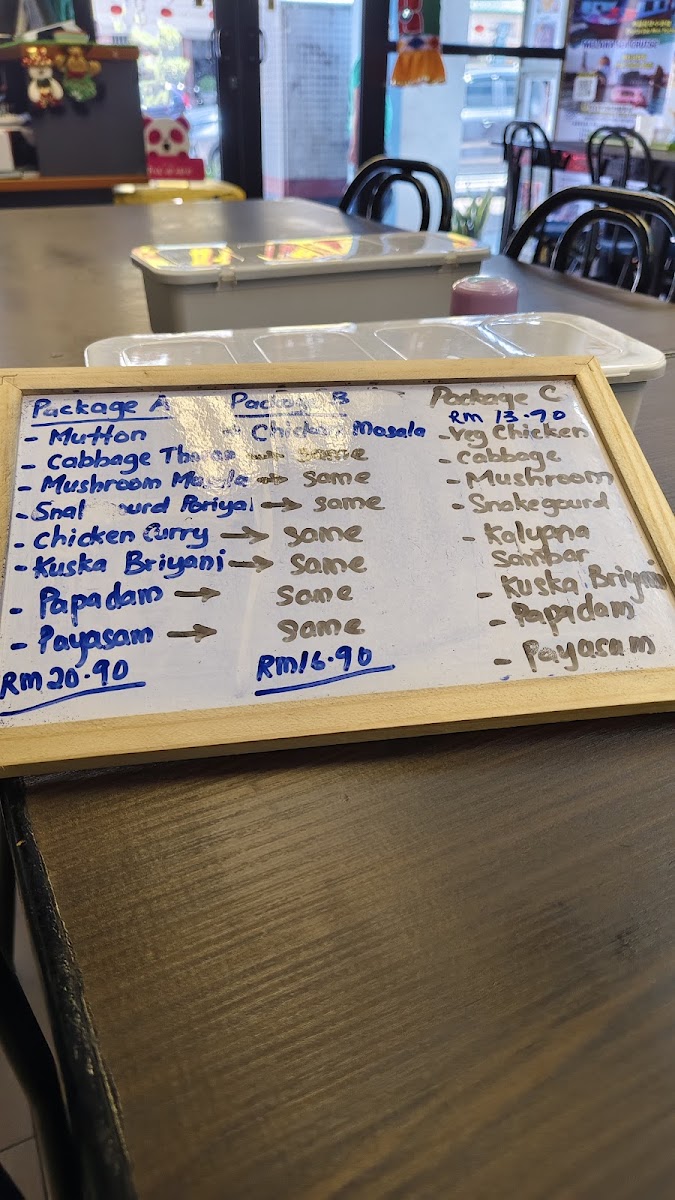 Package A
- Mutton
- Cabbage
- Mushroom
- Poriyal
- Chicken Curry →
- Kuska Briyani →
- Papadam →
- Payasam →
RM 20.90
Package B
- Chicken Masala
→ same
→ same
→ same
same
same
same
same
RM16.90
Package C
RM 13.90
- Veg Chicken
- Cabbage
- Mushroom
- Snakegourd
- Kalupna
Sambar
- Kuska Briyani
- Papadam
- Payasam